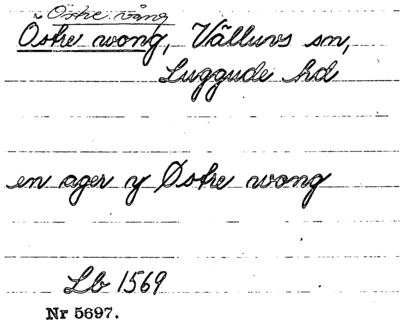 Östre vång
Östre wong, Välluvs sn,
Luggude hd
en ager y Østre wong
Lb 1569
Nr 5697.